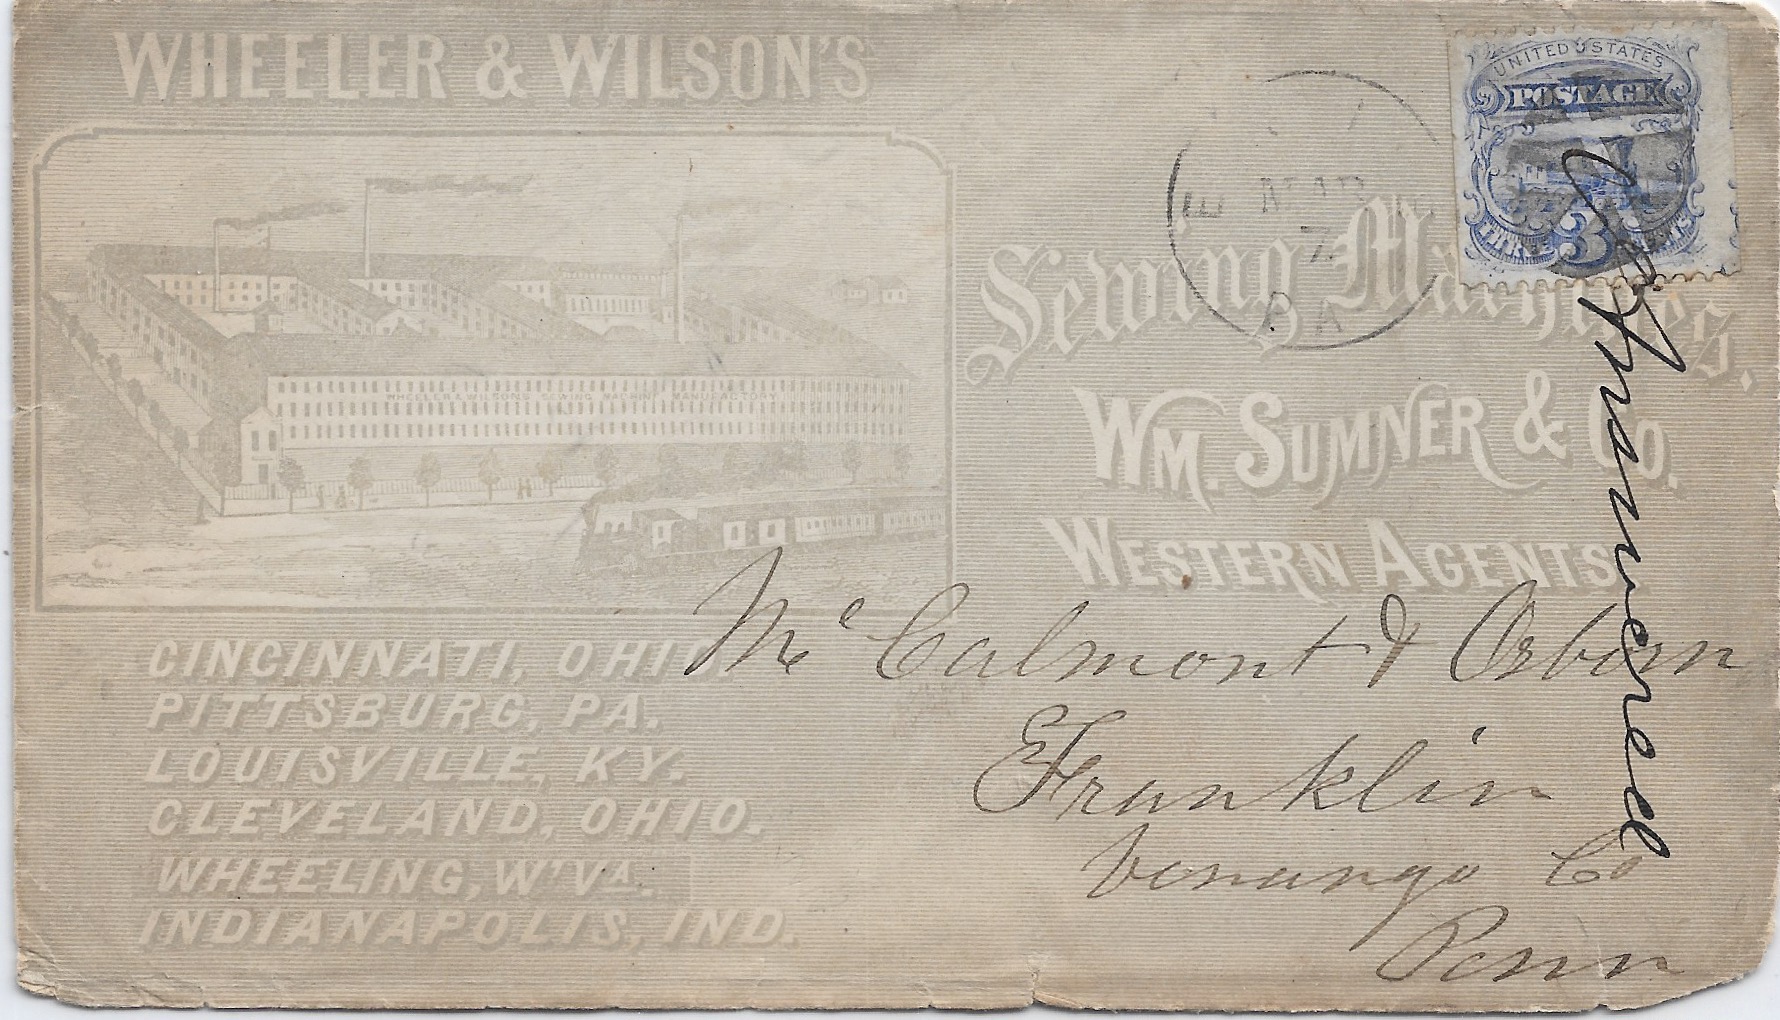 WHEELER & WILSON'S
UNITED STATES
POSTAGE
THREE 3 CENTS
MAR
7
PA
Sewing Machines.
WHEELER & WILSONS SEWING MACHINE MANUFACTORY
WM. SUMNER & CO.
WESTERN AGENTS
CINCINNATI, OHIO.
PITTSBURG, PA.
LOUISVILLE, KY.
CLEVELAND, OHIO.
WHEELING, W'VA.
INDIANAPOLIS, IND.
Mc Calmont & Osborn
Franklin
Venango Co
Penn
Answered